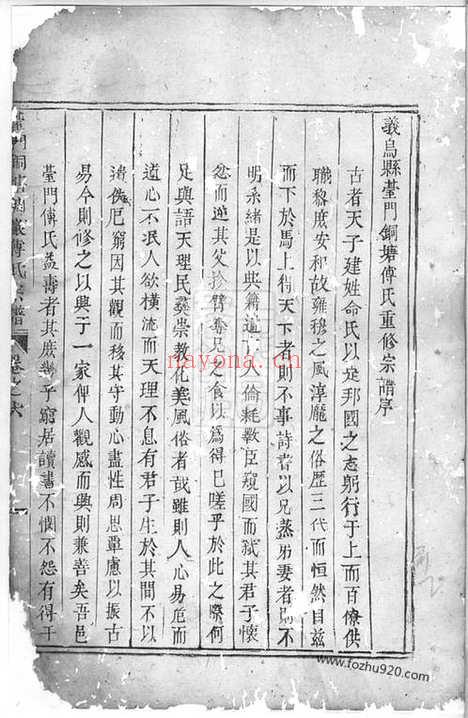 義烏縣薹門銅塘傅氏重修宗譜序
古者天子建姓命氏以定邦國之志躬行于上而百僚供
職務底安和故雍穆之風淳龐之俗歷三代而恒然目茲
而下於馬上得天下者則不事詩書以兄蒸弟妻者則不
明系緒是以典籍遺亡人倫耗斁臣窺國而弑其君子懷
忿而逆其父紾臂奪兄之食以為得已嗟乎於此之際何
足與語天理民彝崇教化美風俗者哉雖則人心易危而
道心不泯人欲橫流而天理不息有君子生於其間不以
厄窮因其觀而移其守動心盡性周思覃慮以振古
易今則修之以興于一家俾人觀感而興則兼善矣吾邑
薹門傅氏益壽者其庶幾乎窮居讀書不憫不怨有得于
門銅塘傅氏宗譜
卷之
nayona.cn
www.fozhu920.com